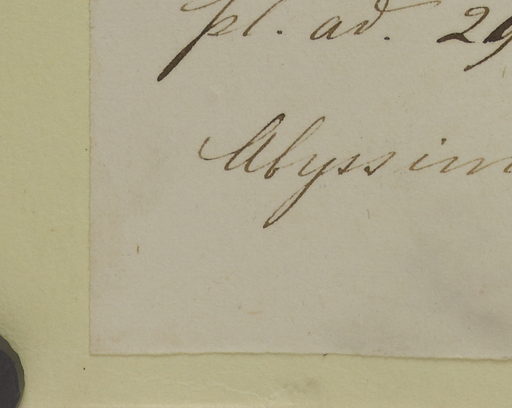 pl. ad. 29
Abyssin